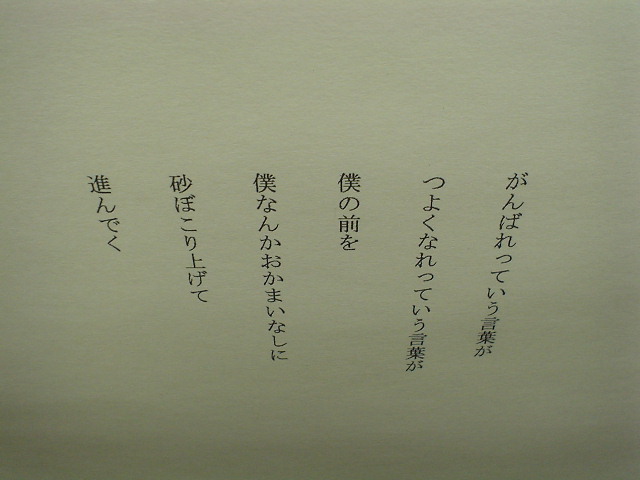 がんばれっていう言葉が
つよくなれっていう言葉が
僕の前を
僕なんかおかまいなしに
砂ぼこり上げて
進んでく